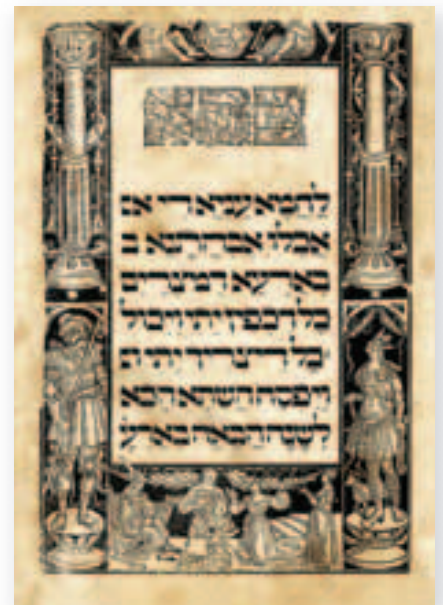 לחמא עניא די
אכלו אבהתנא ב
בארעא דמצרים
כל דכפין יתי ויכול
כל דיצריך יתי
ויפסח השתא הכא
לשנה הבאה בארע